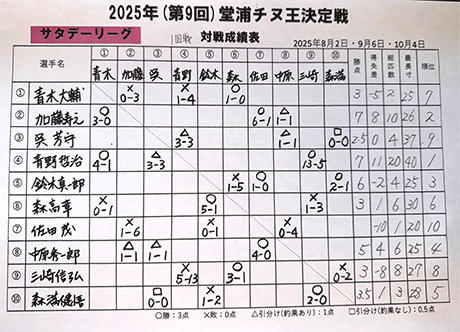 2025年（第9回）堂浦チヌ王決定戦
サタデーリーグ 1回戦 対戦成績表 2025年8月2日・9月6日・10月4日
選手名 ① ② ③ ④ ⑤ ⑥ ⑦ ⑧ ⑨ ⑩ 勝点 得失差 総匹数 最長寸 順位
青木 加藤 呉 青野 鈴木 森 佐田 中原 三崎 森満
① 青木大輔 × 0-3 × 1-4 ○ 1-0 3 -5 2 25 7
② 加藤寿元 ○ 3-0 ○ 6-1 △ 1-1 7 8 10 26 2
③ 呉芳守 △ 3-3 △ 1-1 □ 0-0 2.5 0 4 37 9
④ 青野哲治 ○ 4-1 △ 3-3 ○ 13-5 7 11 20 40 1
⑤ 鈴木真一郎 × 1-5 ○ 1-0 ○ 2-1 6 -2 4 25 3
⑥ 森高章 × 0-1 ○ 5-1 × 1-3 3 1 6 30 6
⑦ 佐田茂 × 1-6 × 0-1 × 0-4 -10 1 20 10
⑧ 中原秀一郎 △ 1-1 △ 1-1 ○ 4-0 5 4 6 25 4
⑨ 三崎信弘 × 5-13 ○ 3-1 × 0-2 3 -8 8 27 8
⑩ 森満健悟 □ 0-0 × 1-2 ○ 2-0 3.5 1 3 28 5
○：勝：3点 ×敗：0点 △引分け（釣果あり）：1点 □引分け（釣果なし）：0.5点